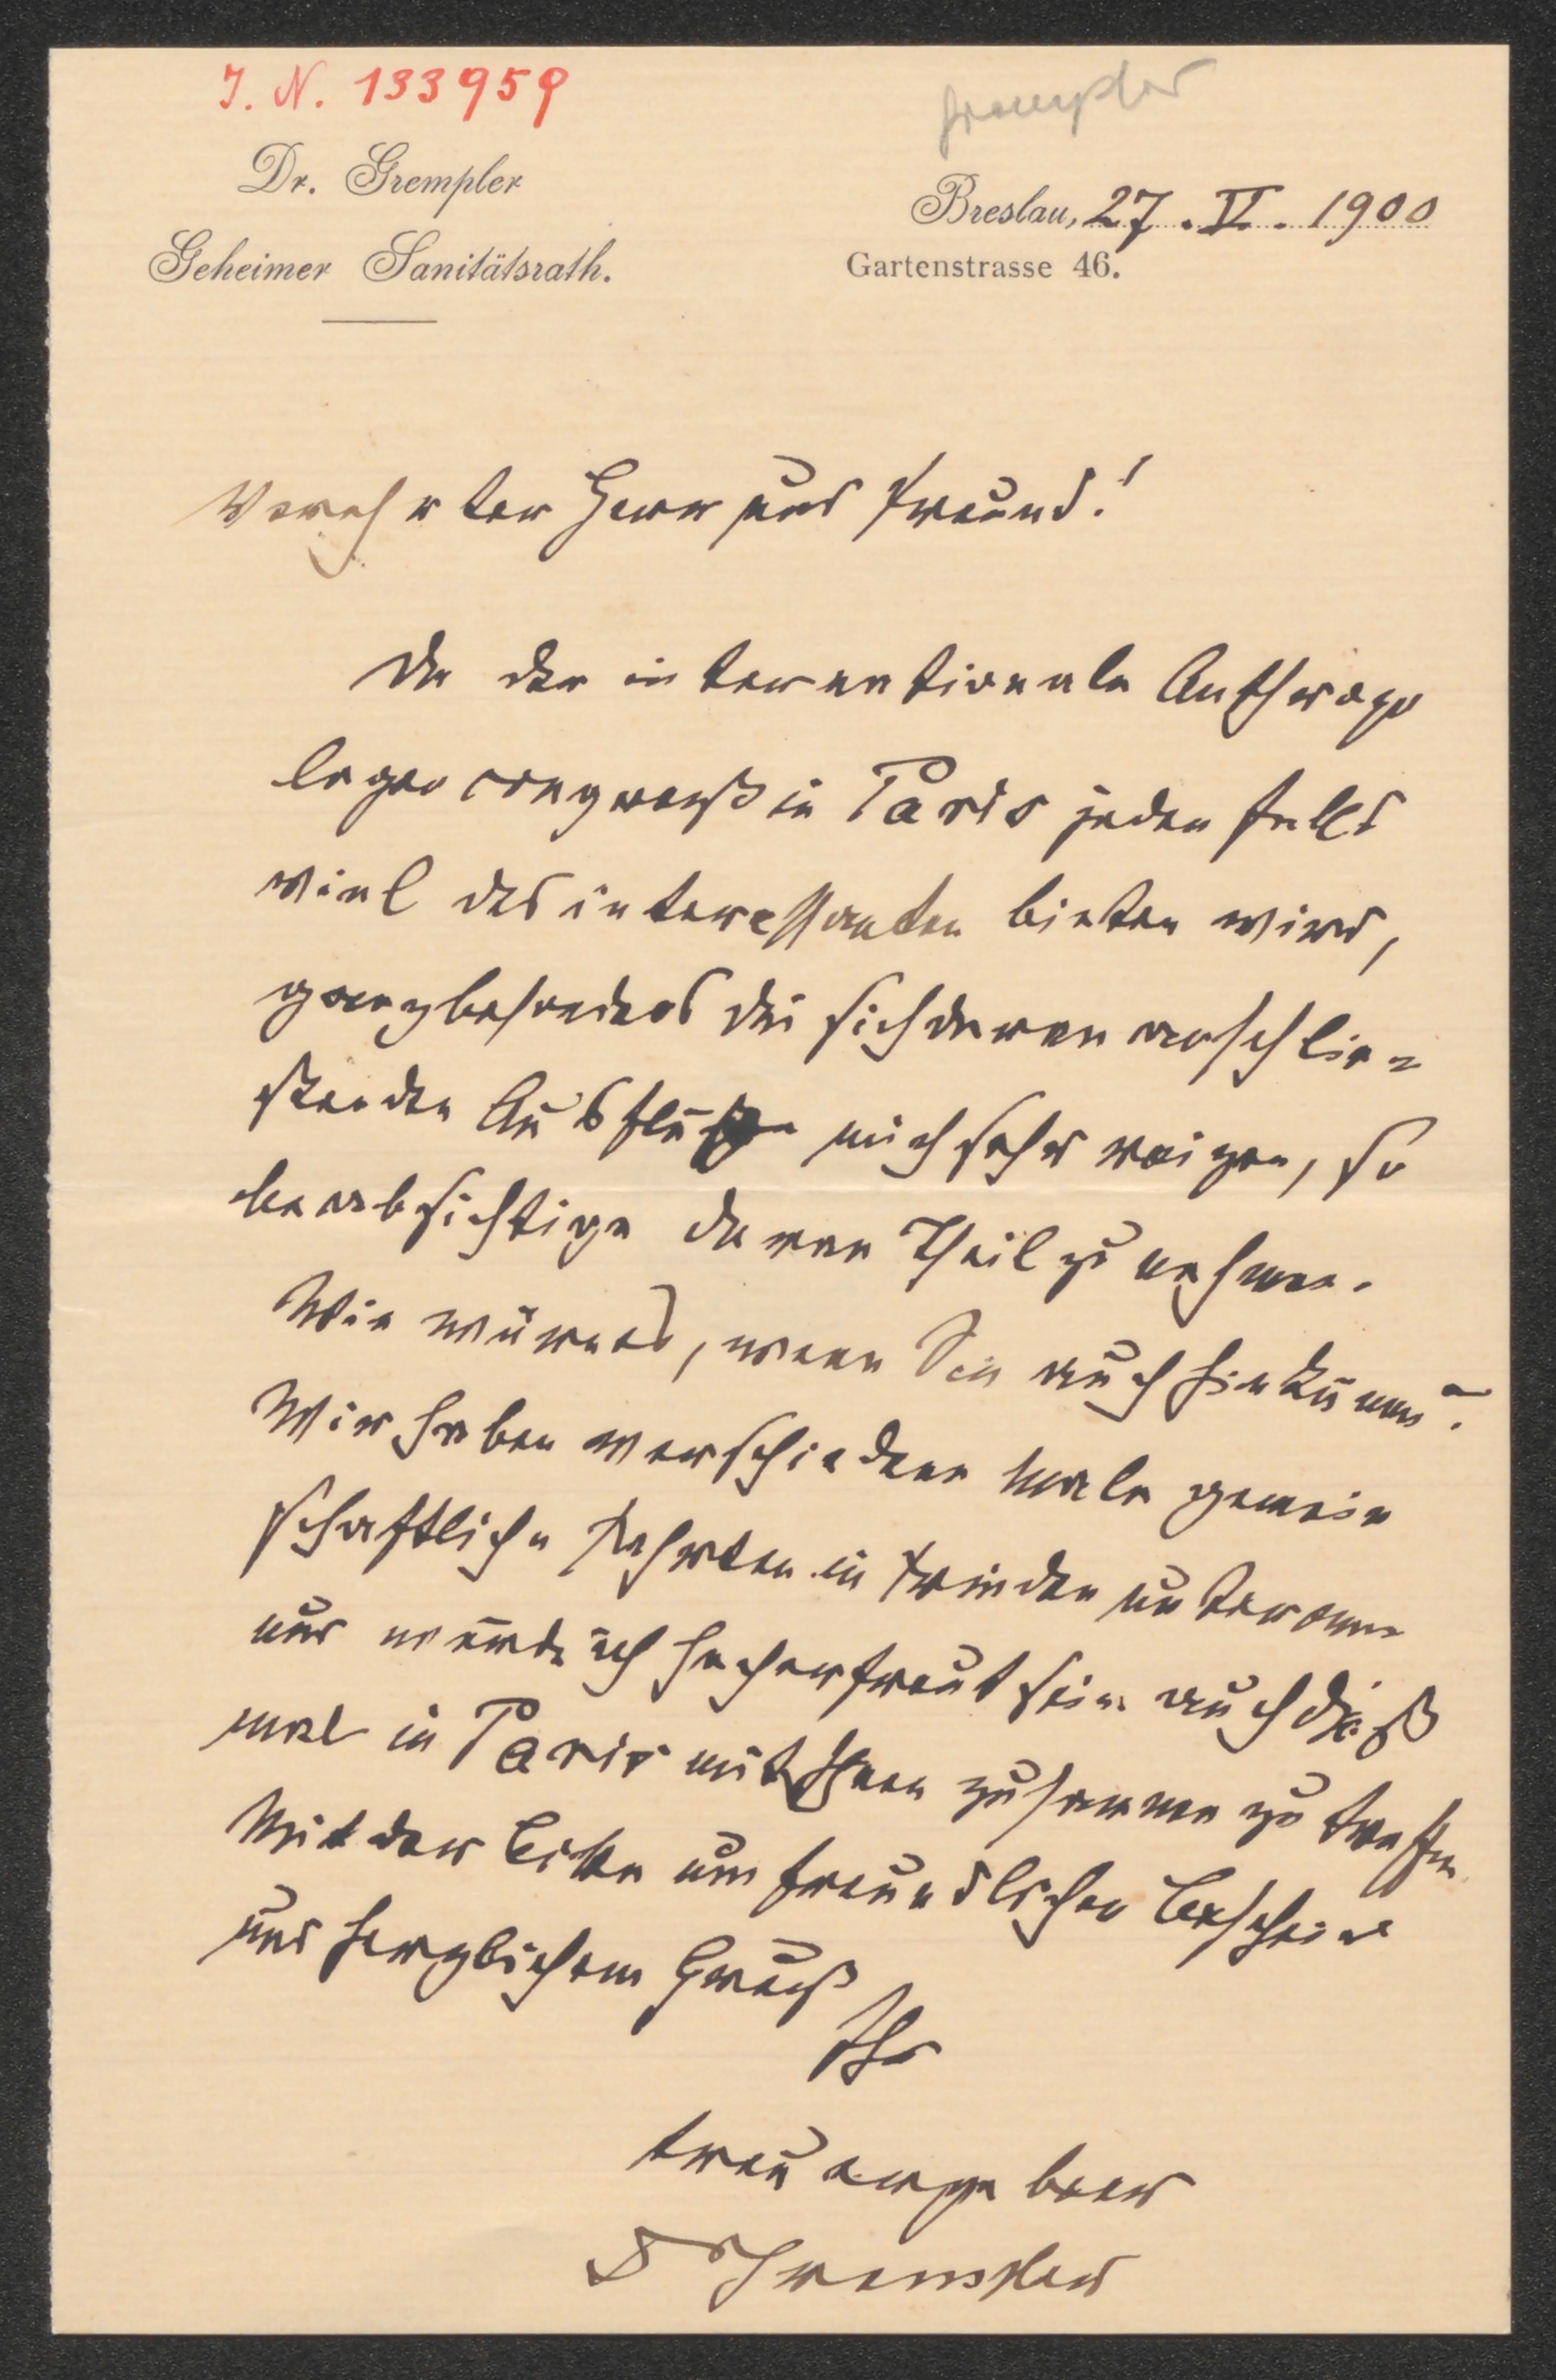 J. N. 133959
Grempler
Dr. Grempler
Geheimer Sanitätsrath.
Breslau, 27. V. 1900
Gartenstrasse 46.
Verehrter Herr und Freund!
Da der internationale Anthropo
logen congreß in Paris jeden falls
viel des interessanten bieten wird,
ganz besonders die sich daran anschlie=
ßenden Ausflüge mich sehr reizen, so
beabsichtige daran Theil zu nehmen.
Wie wäre es, wenn Sie auch hinkämen.
Wir haben verschiedene Male gemein
schaftliche Fahrten in
und würde ich hocherfreut sein auch dieß
mal in Paris mit Ihnen zusammen zu treffen
Mit der Bitte um freundlichen Bescheid
und herzlichem Gruß
Ihr
treu ergebener
Dr Grempler